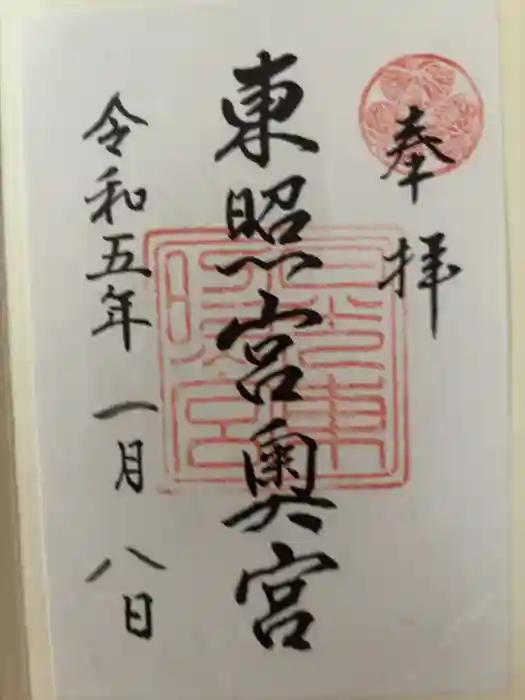 奉拝
東照宮奥宮
令和五年一月八日